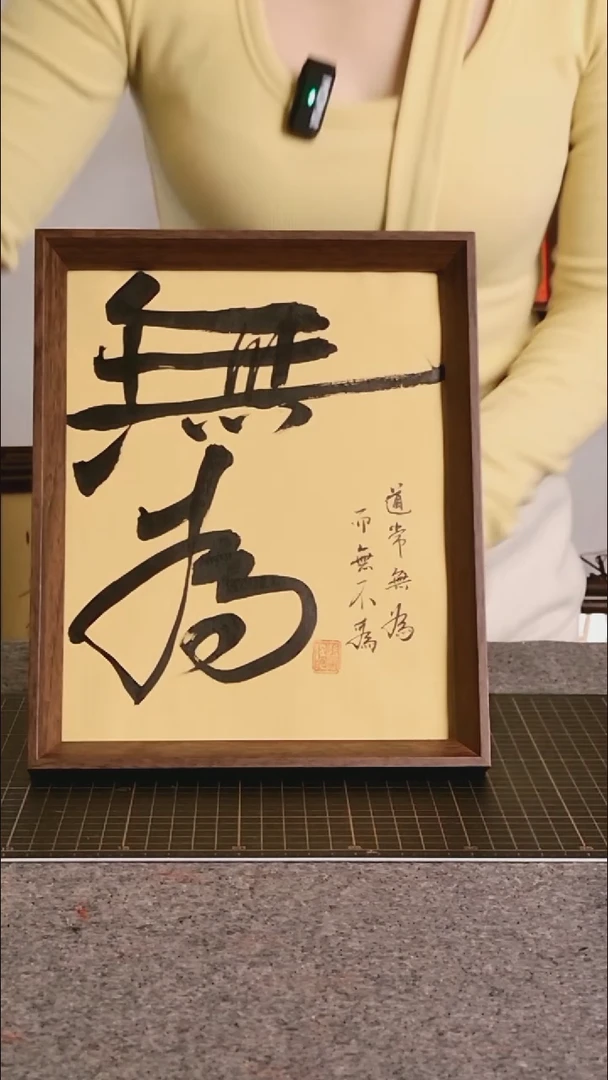 無為
道常無為
而無不為